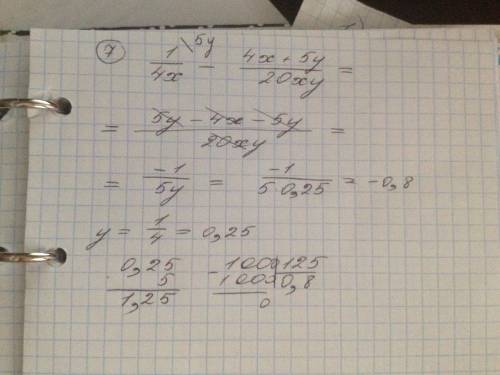 7) 1/4x \5y - (4x + 5y)/20xy =
= (5y - 4x - 5y)/20xy =
= -1/5y = -1/(5·0,25) = -0,8
y = 1/4 = 0,25
0,25 - 1000 | 125
5 1000 0,8
1,25 0